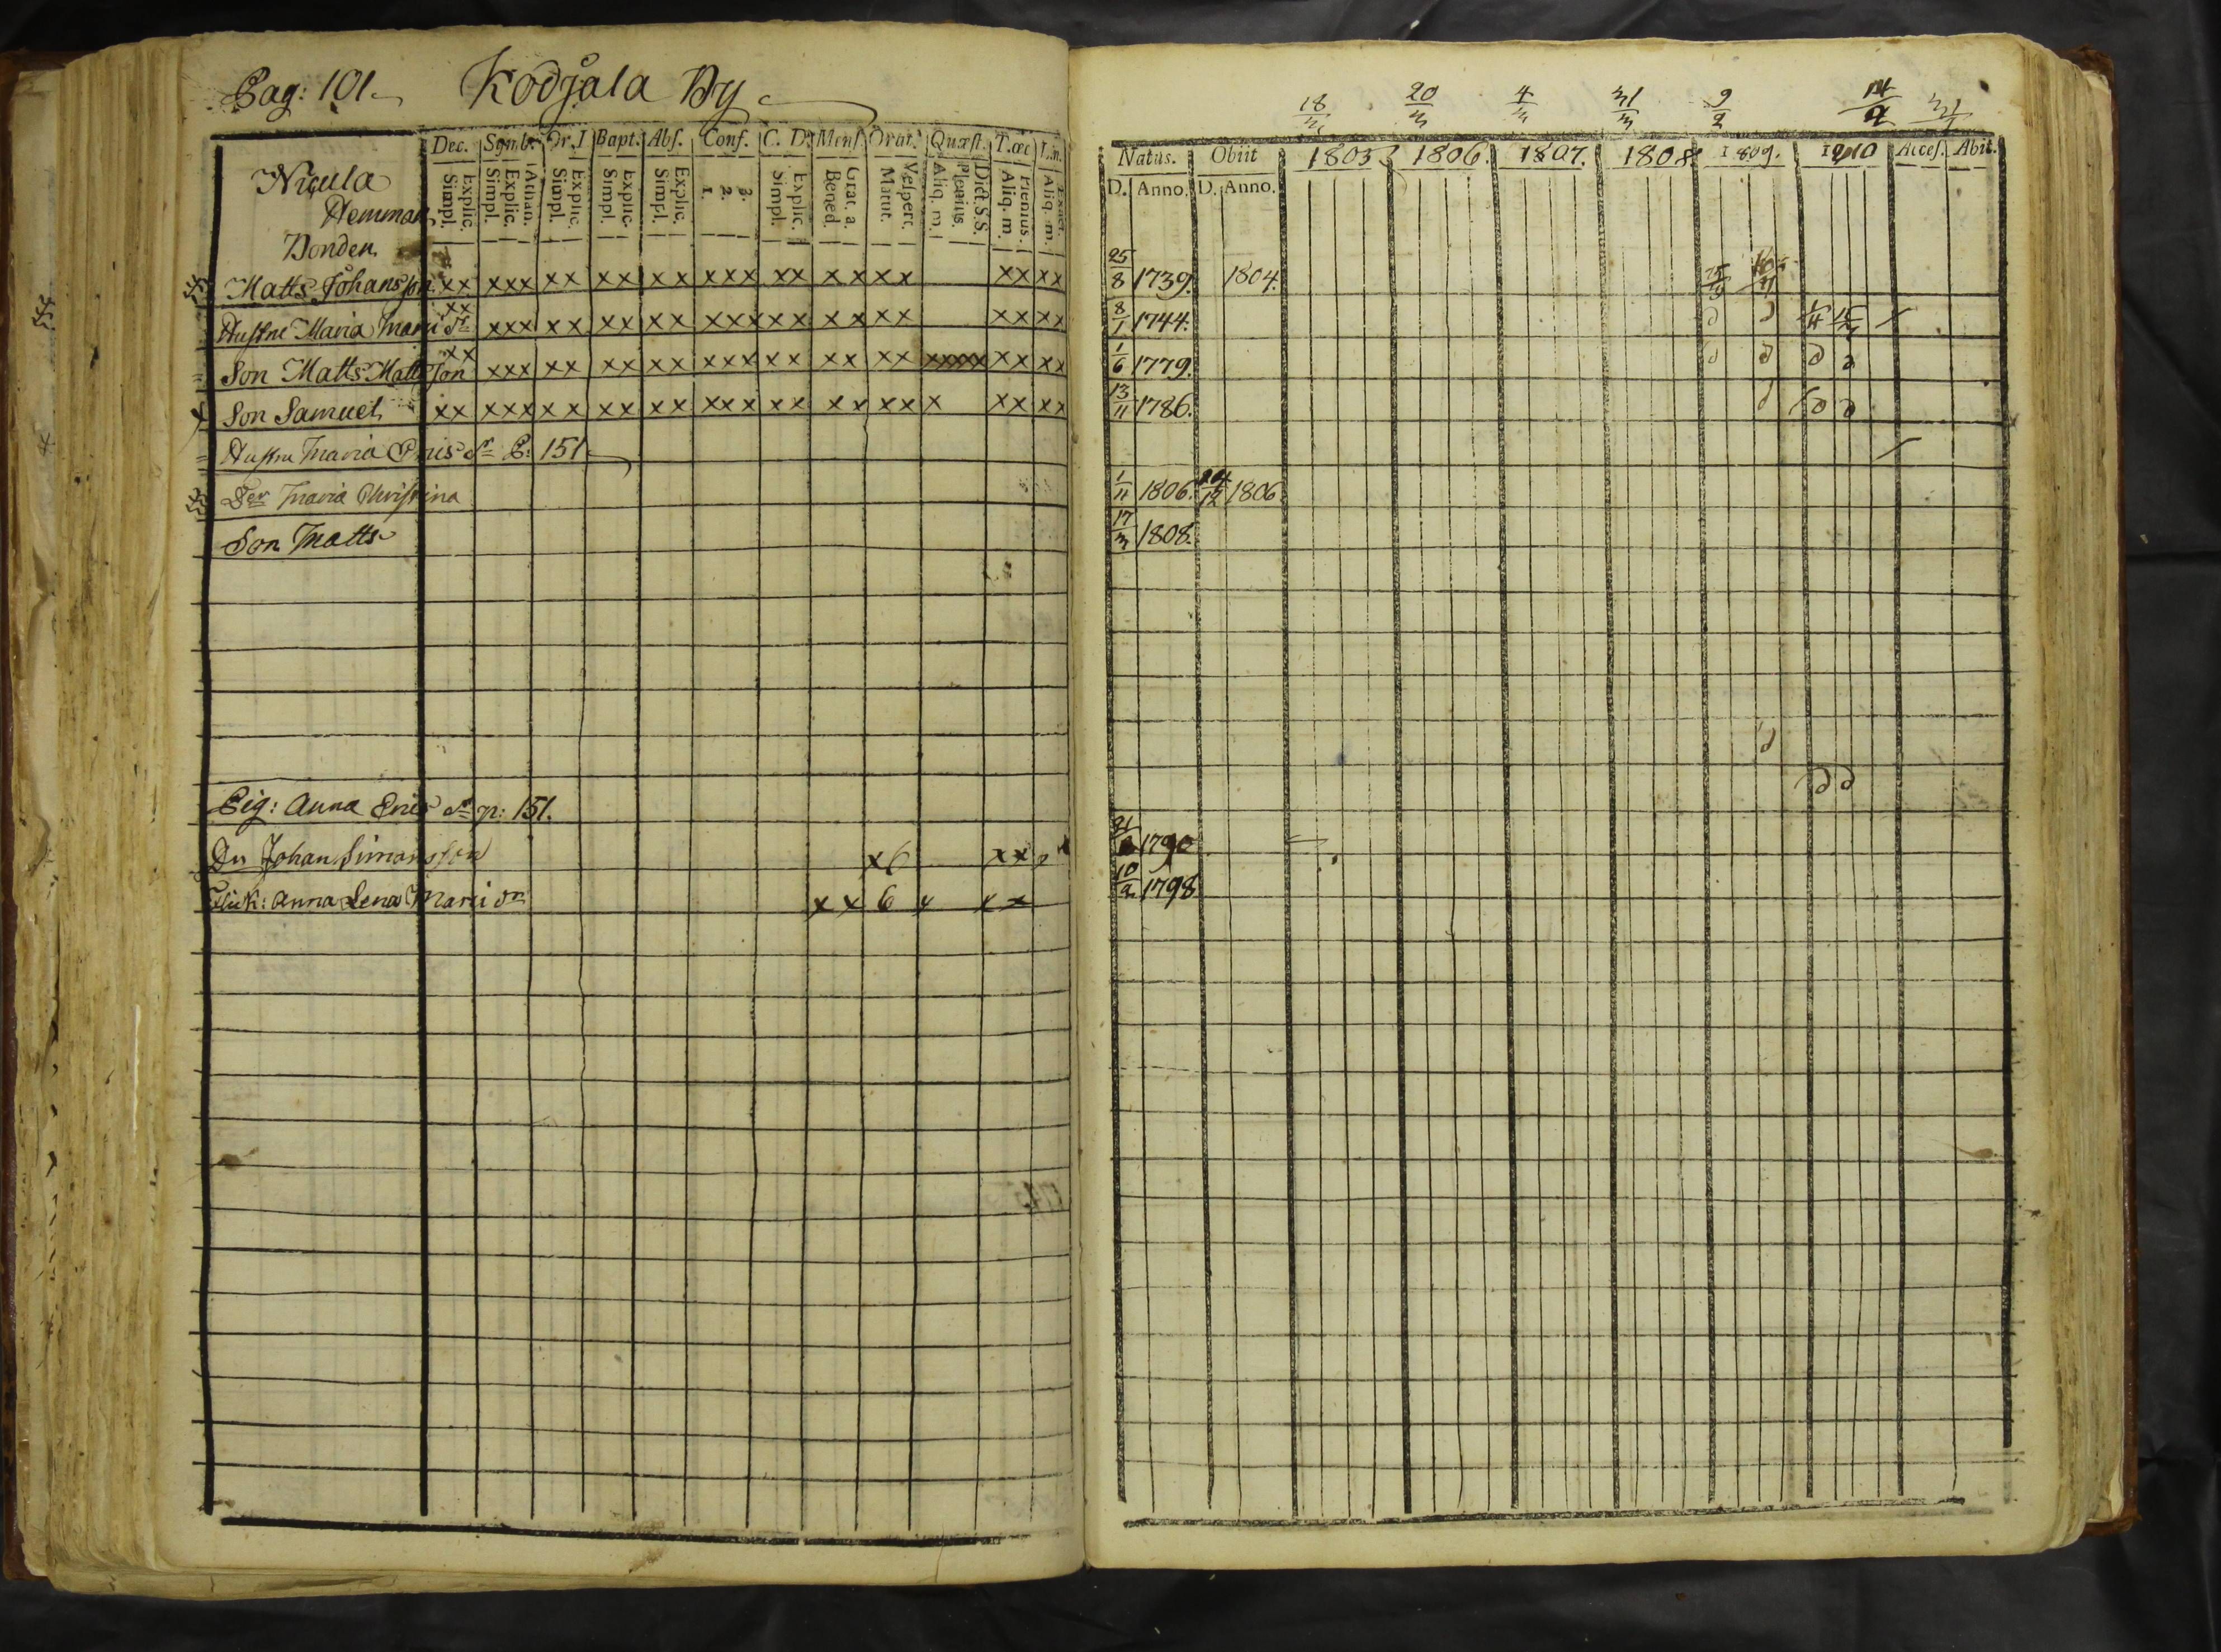 Pag: 101. Kodjala By
Dec. Symb. Or. J Bapt. Abs. Conf. C. D. Mens. Orat. Quæst. T.œc
Explic. Simpl. Athan. Explic. Simpl. Explic. Simpl. Explic. Simpl. Explic. Simpl. 3. 2. 1. Explic. Simpl. Grat. a. Bened. Vespert. Matut. Dict. S.S. Plenius. Aliq. m. Plenius. Aliq. m. Aliq. m.
Nicula
Hemman
Bonden
Matts Johansson xx xxx xx xx xx xxx xx xx xx xx xx
Hustru Maria xx xxx xx xx xx xxx xx xx xx xx xx
Son Matts Matts son xx xxx xx xx xx xxx xx xx xx xxxxx xx xx
Son Samuel xx xxx xx xx xx xxx xx xx xx x xx xx
Hustru Maria P: 151
Der Maria Christina
Son Matts
Pig: Anna p: 151.
Dr Johan Simonsson x6 xx
Flick: Anna Lena xx 6 x xx
18 20 4 31 9 14
Natus. Obiit 1805 1806. 1807. 1808 1809. 1810 Acces. Abit.
D. Anno. D. Anno.
25/8 1739. 1804.
8/1 1744.
1/6 1779.
13/11 1786.
1/11 1806. 24/12 1806.
17/3 1808.
21 1790
10/2 1798.